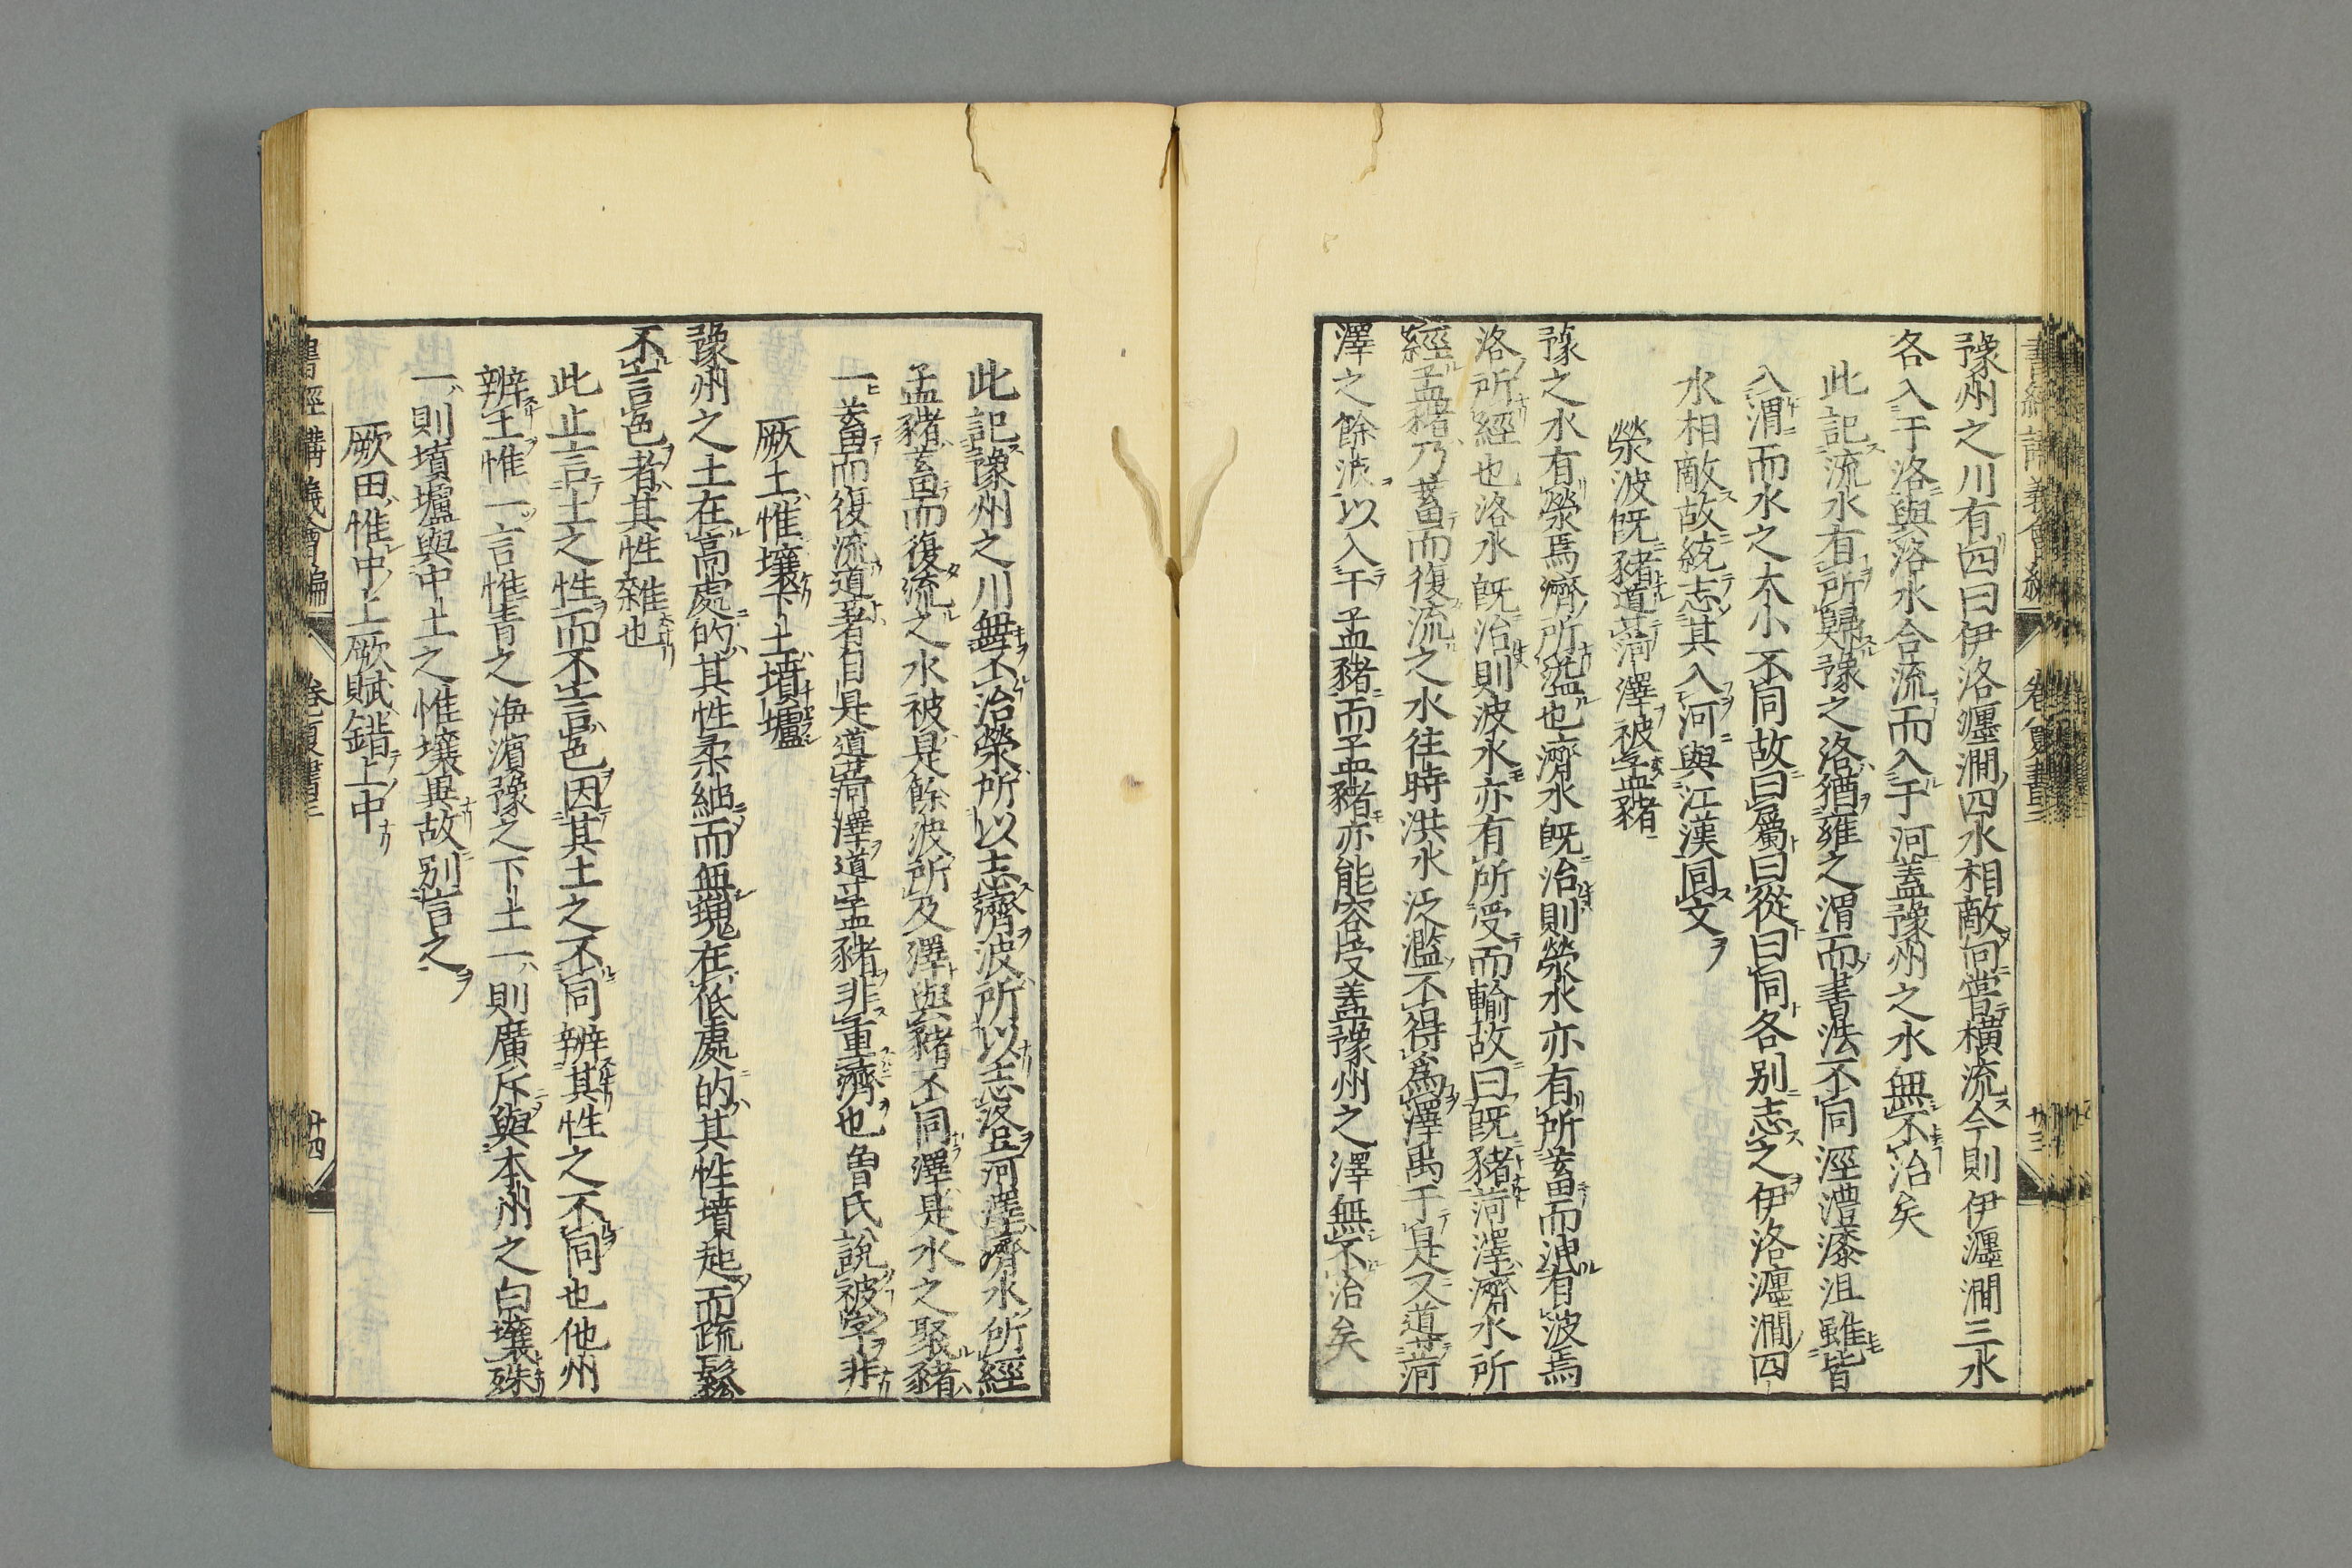 豫州之川有四曰伊洛瀍澗四水相敵向嘗横流今則伊瀍澗三水
各入于洛與洛水合流而入于河蓋豫州之水無不治矣
此記流水有所歸豫之洛猶雍之渭而書法不同涇澧漆沮雖皆
入渭而水之大小不同故曰屬曰從曰同各別志之伊洛瀍澗四
水相敵故統志其入河與江漢同文
滎波既豬道菏澤被孟豬
豫之水有滎焉濟所溢也濟水既治則滎水亦有所蓄而洩有波焉
洛所經也洛水既治則波水亦有所受而輸故曰既豬菏澤濟水所
經孟豬乃蓄而復流之水往時洪水泛濫不得爲澤禹于是又道菏
澤之餘波以入于孟豬而孟豬亦能容受蓋豫州之澤無不治矣
此記豫州之川無不治滎所以志濟波所以志洛且河澤濟水所經
孟豬蓄而復流之水被是餘波所及澤與豬不同澤是水之聚豬
一蓄而復流道者自是道菏澤道孟豬非重濟也魯氏説被字非
厥土惟壤下土墳壚
豫州之土在高處的其性柔細而無塊在低處的其性墳起而疏鬆
不言色者其性雜也
此止言土之性而不言色因其土之不同辨其性之不同也他州
辨土惟一言惟青之海濱豫之下土一則廣斥與本州之白壤殊
一則墳壚與中土之惟壤異故別言之
厥田惟中上厥賦錯上中
書經講義會編 卷 夏書 廿四